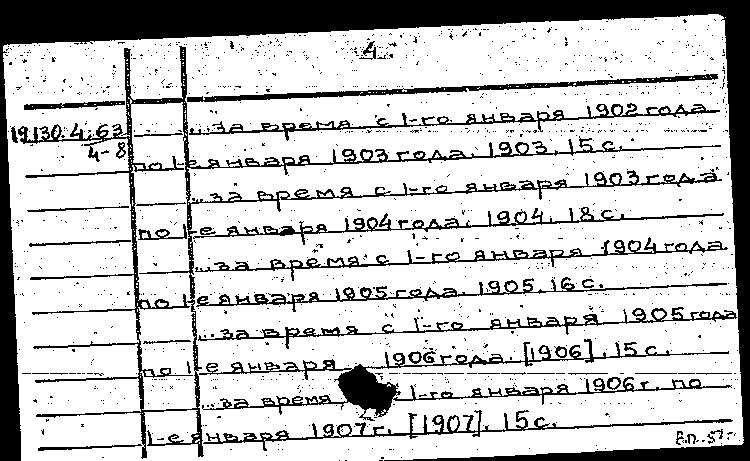 4
19.130.4.63
4-8
...за время с 1-го января 1902 года
по 1-е января 1903 года. 1903. 15 с.
...за время с 1-го января 1903 года
по 1-е января 1904 года. 1904. 18 с.
...за время с 1-го января 1904 года
по 1-е января 1905 года. 1905. 16 с.
...за время с 1-го января 1905 года
по 1-е января 1906 года. [1906]. 15 с.
...за время 1-го января 1906 г. по
1-е января 1907 г. [1907]. 15 с.